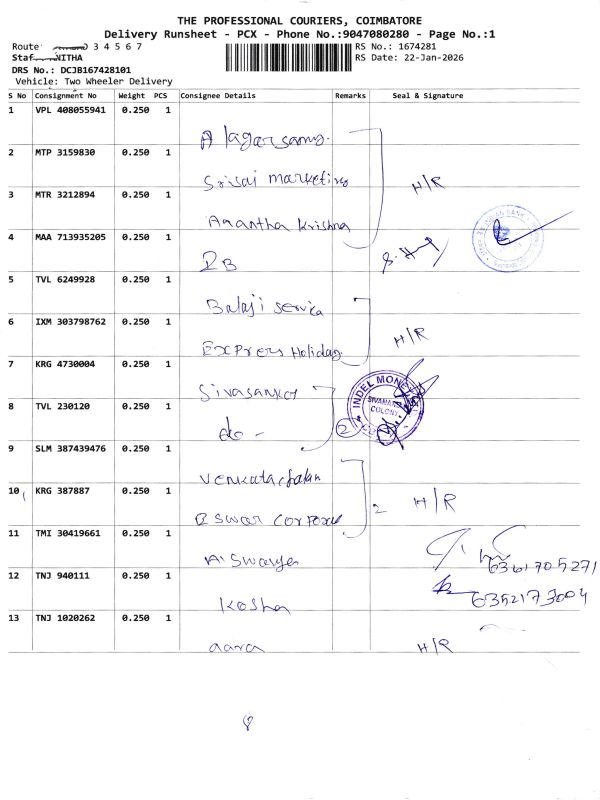 THE PROFESSIONAL COURIERS, COIMBATORE
Delivery Runsheet - PCX - Phone No.:9047080280 - Page No.:1
Route 3 4 5 6 7 RS No.: 1674281
Staf NITHA RS Date: 22-Jan-2026
DRS No.: DCJB167428101
Vehicle: Two Wheeler Delivery
S No Consignment No Weight PCS Consignee Details Remarks Seal & Signature
1 VPL 408055941 0.250 1 Alagarsamy
2 MTP 3159830 0.250 1 Srisai marketing H/R
3 MTR 3212894 0.250 1 Anantha Krishna
4 MAA 713935205 0.250 1 IB
5 TVL 6249928 0.250 1 Balaji service
6 IXM 303798762 0.250 1 Express Holiday H/R
7 KRG 4730004 0.250 1 Sivasankar
INDEL MONEY
SIVANANDA COLONY
8 TVL 230120 0.250 1 do - 2
9 SLM 387439476 0.250 1 Venkatachalan
10 KRG 387887 0.250 1 Eswar Corpora 2 H/R
11 TMI 30419661 0.250 1 Aiswarya 6361705271
12 TNJ 940111 0.250 1 Kosha 6352173004
13 TNJ 1020262 0.250 1 aara H/R